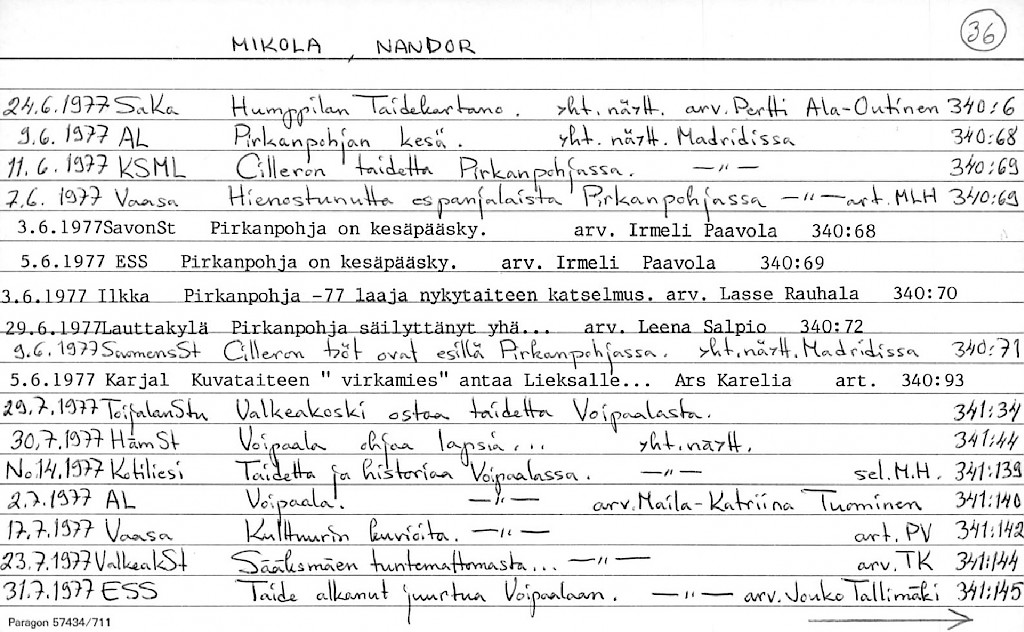 36
MIKOLA, NANDOR
24.6.1977 SaKa Humppilan Taidekartano. yht.näytt. arv. Pertti Ala-Outinen 340:6
9.6.1977 AL Pirkanpohjan kesä. yht.näytt. Madridissa 340:68
11.6.1977 KSML Cilleron taidetta Pirkanpohjassa. —"— 340:69
7.6.1977 Vaasa Hienostunutta espanjalaista Pirkanpohjassa —"— art. MLH 340:69
3.6.1977SavonSt Pirkanpohja on kesäpääsky. arv. Irmeli Paavola 340:68
5.6.1977 ESS Pirkanpohja on kesäpääsky. arv. Irmeli Paavola 340:69
3.6.1977 Ilkka Pirkanpohja -77 laaja nykytaiteen katselmus. arv. Lasse Rauhala 340:70
29.6.1977Lauttakylä Pirkanpohja säilyttänyt yhä... arv. Leena Salpio 340:72
9.6.1977 SuomensSt Cilleron työt ovat esillä Pirkanpohjassa. yht.näytt. Madridissa 340:71
5.6.1977 Karjal Kuvataiteen " virkamies" antaa Lieksalle... Ars Karelia art. 340:93
29.7.1977 ToijalanStu Valkeakoski ostaa taidetta Voipaalasta. 341:34
30.7.1977 HämSt Voipaala ohjaa lapsia... yht.näytt. 341:44
No.14.1977 Kotiliesi Taidetta ja historiaa Voipaalassa. —"— sel. M.H. 341:139
2.7.1977 AL Voipaala. —"— arv. Maila-Katriina Tuominen 341:140
17.7.1977 Vaasa Kulttuurin kuvioita. —"— art. PV 341:142
23.7.1977 ValkeakSt Sääksmäen tuntemattomasta... —"— arv. TK 341:144
31.7.1977 ESS Taide alkanut juurtua Voipaalaan. —"— arv. Jouko Tallimäki 341:145
Paragon 57434/711